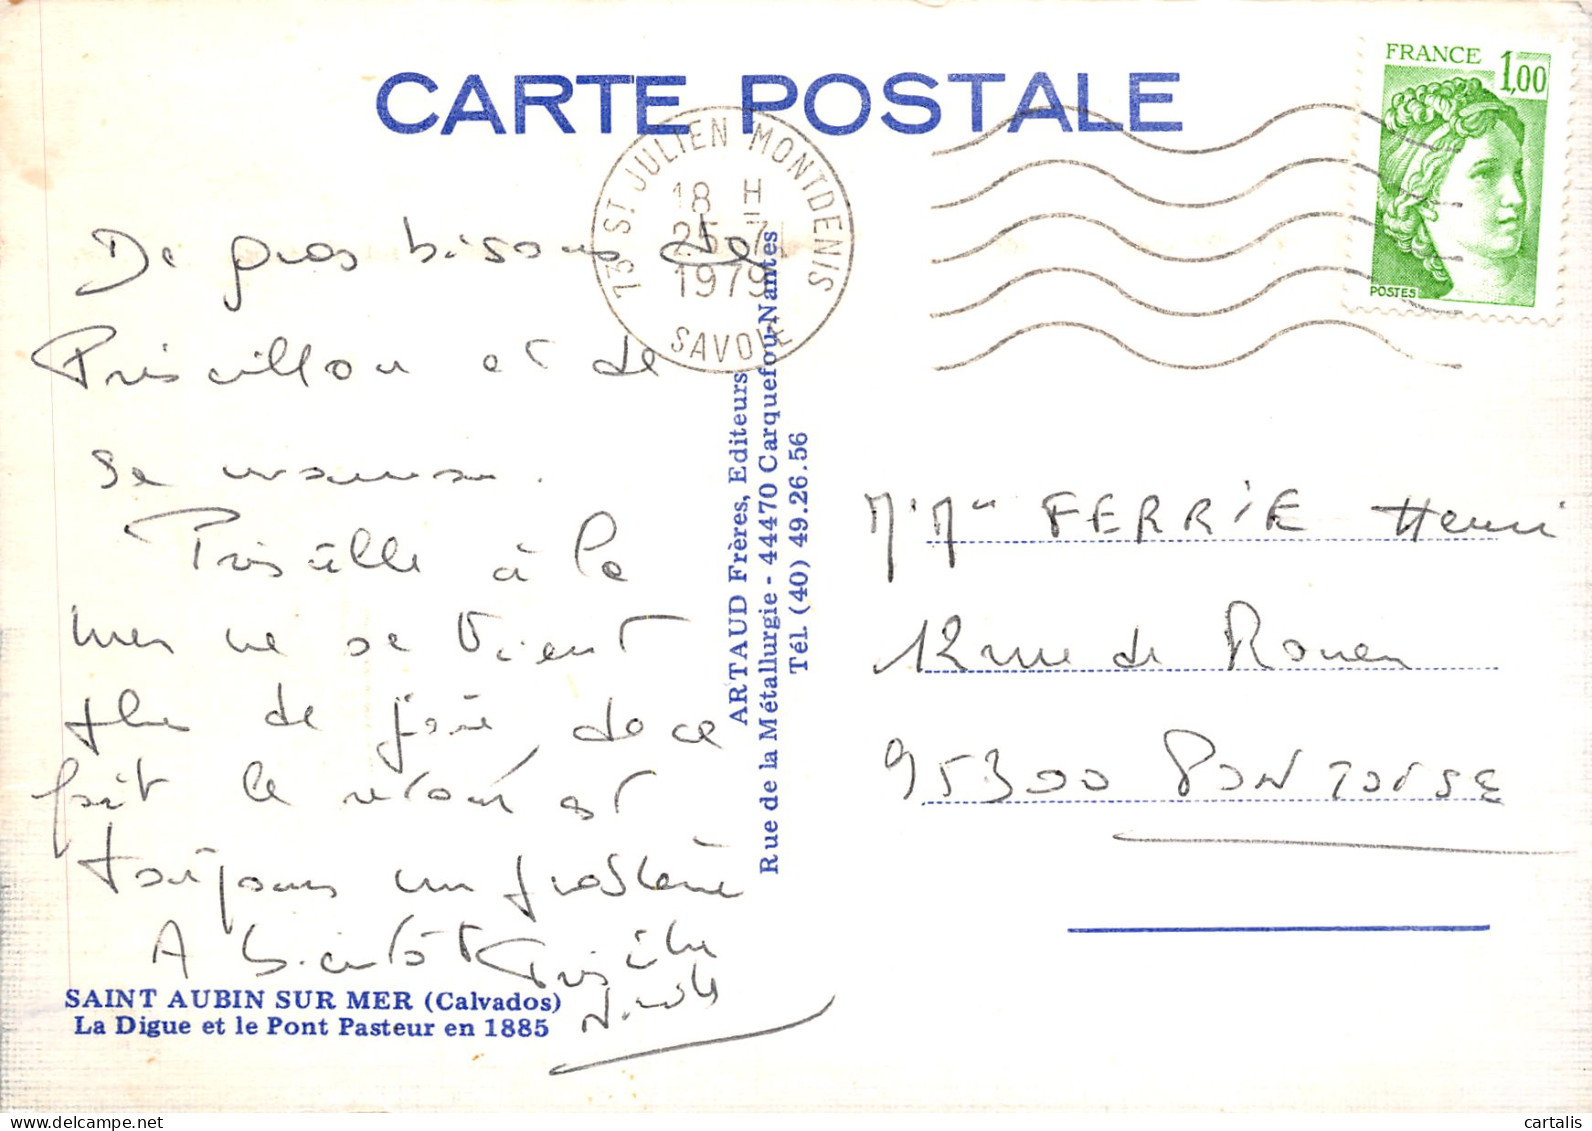 CARTE POSTALE
FRANCE 1,00
POSTES
73 ST JULIEN MONTDENIS
18 H
25 - 7
1979
SAVOIE
De gros bisous de
Priscillou et de
sa maman.
Priscille à la
mer ne se tient
plus de joie, de ce
fait le retour est
toujours un
A bientôt Priscille
Nicole
SAINT AUBIN SUR MER (Calvados)
La Digue et le Pont Pasteur en 1885
ARTAUD Frères, Editeurs
Rue de la Métallurgie - 44470 Carquefou-Nantes
Tél. (40) 49.26.56
FERRIE Henri
12 rue de Rouen
95300 PONTOISE
cartalis